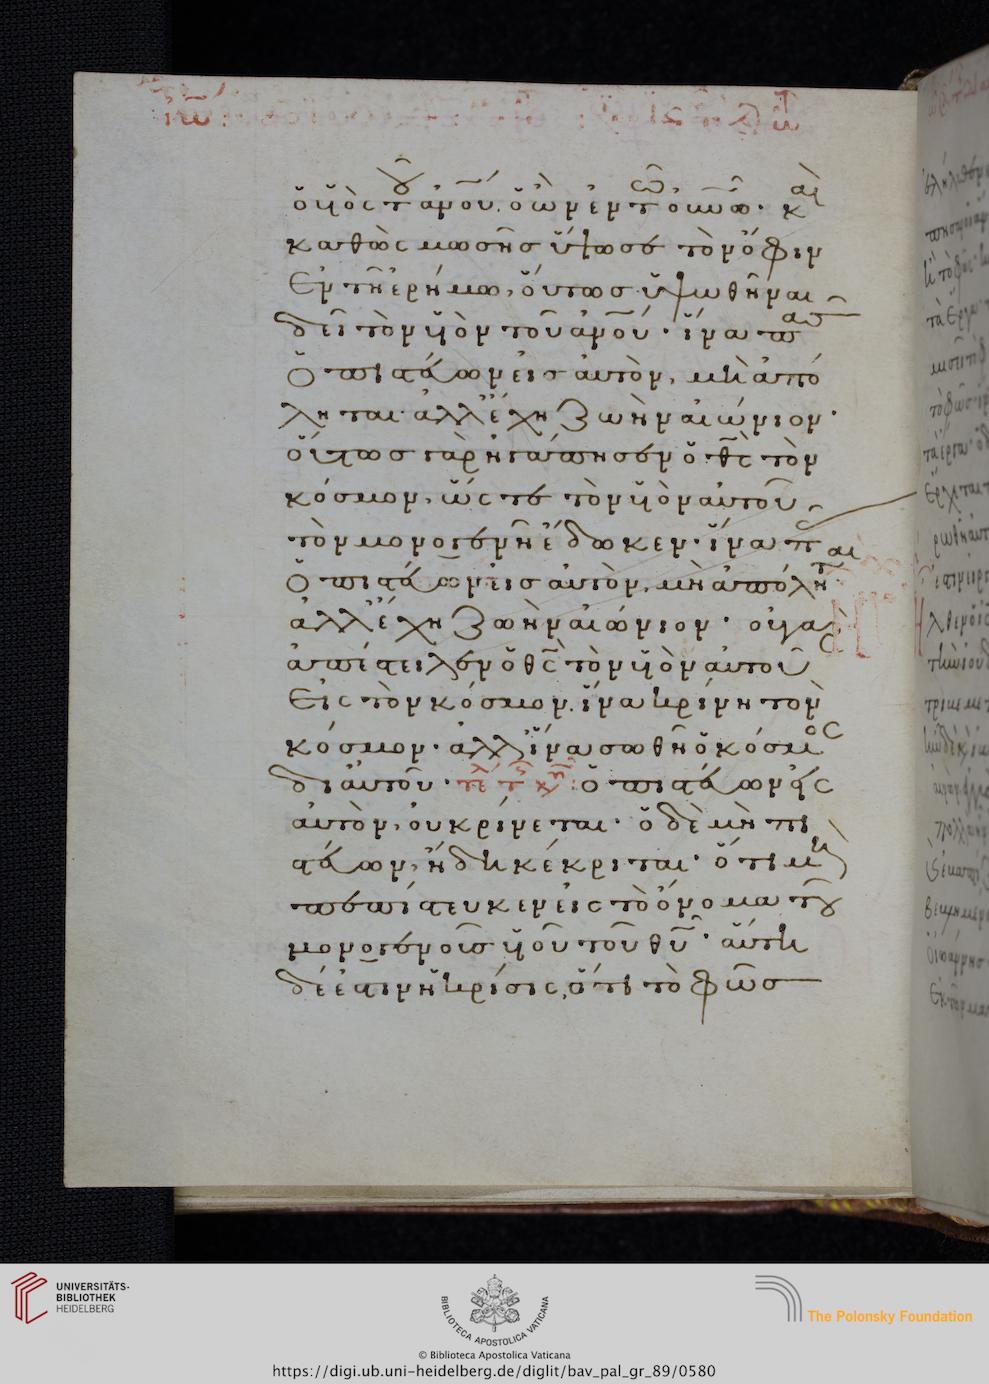 ὁ υἱὸς τοῦ ἀνου. ὁ ὢν ἐν τῶ οὐνῶ· καὶ
καθὼς μωσῆς ὕψωσε τὸν ὄφιν
ἐν τῆ ἐρήμω, οὕτωσ ὑψωθῆναι
δεῖ τὸν υἱὸν τοῦ ἀνου· ἵνα πασ
ὁ πιστεύων εἰσ αὐτὸν, μὴ ἀπό
ληται· ἀλλ' ἔχη ζωὴν αἰώνιον·
οὕτωσ γὰρ ἠγάπησεν ὁ θς τὸν
κόσμον, ὥς τε τὸν υἱὸν αὐτοῦ
τὸν μονογενῆ ἔδωκεν· ἵνα πᾶς
ὁ πιστεύων εἰσ αὐτὸν, μὴ ἀπόληται
ἀλλ' ἔχη ζωὴν αἰώνιον· οὐ γὰρ
ἀπέστειλεν ὁ θς τὸν υἱὸν αὐτοῦ
εἰς τὸν κόσμον. ἵνα κρίνη τὸν
κόσμον· ἀλλ' ἵνα σωθῆ ὁ κόσμος
δι αὐτοῦ· ὁ πιστεύων εἰς
αὐτὸν, οὐ κρίνεται· ὁ δὲ μὴ πι
στεύων, ἤδη κέκριται· ὅτι μὴ
πεπίστευκεν εἰς τὸ ὄνομα τοῦ
μονογενοῦς υἱοῦ τοῦ θυ· αὕτη
δέ ἐστιν ἡ κρίσις, ὅτι τὸ φῶσ
UNIVERSITÄTS-
BIBLIOTHEK
HEIDELBERG
BIBLIOTECA APOSTOLICA VATICANA
The Polonsky Foundation
© Biblioteca Apostolica Vaticana
https://digi.ub.uni-heidelberg.de/diglit/bav_pal_gr_89/0580